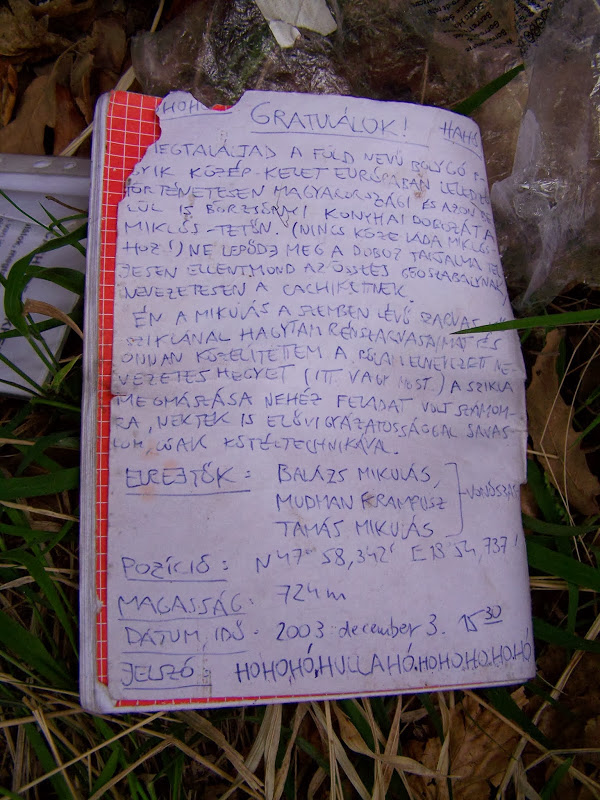 HOH
GRATULÁLOK! HAHÓ
MEGTALÁLTAD A FÖLD NEVŰ BOLYGÓ
GYIK KÖZÉP-KELET EURÓPÁBAN
TÖRTÉNETESEN MAGYARORSZÁGI ÉS AZON BE
LÜL IS BÖRZSÖNYI KONYHAI DOBOZÁT A
MIKLÓS-TETŐN. (NINCS KÖZE LADA MIKLÓS-
HOZ!) NE LEPŐDJ MEG A DOBOZ TARTALMA TEL
JESEN ELLENTMOND AZ ÖSSZES GEOSZABÁLYNAK
NEVEZETESEN A CACHIKETTNEK.
ÉN A MIKULÁS A SZEMBEN LÉVŐ SZARVAS
SZIKLÁNÁL HAGYTAM RÉNSZARVASAIMAT ÉS
ONNAN KÖZELÍTETTEM A RÓLAM ELNEVEZETT NE-
VEZETES HEGYET (ITT VAGY MOST.) A SZIKLA
MEGMÁSZÁSA NEHÉZ FELADAT VOLT SZÁMOM-
RA, NEKTEK IS ELŐVIGYÁZATOSSÁGGAL JAVAS-
LOM, CSAK KÖTÉLTECHNIKÁVAL.
ELREJTŐK: BALÁZS MIKULÁS,
MUDMAN KRAMPUSZ
TAMÁS MIKULÁS
POZÍCIÓ: N 47° 58,342' E 18° 54,737'
MAGASSÁG: 724 m
DÁTUM, IDŐ: 2003 december 3. 15 30
JELSZÓ: HOHOHÓ, HULLA HÓ, HOHOHO, HO, HO, HÓ